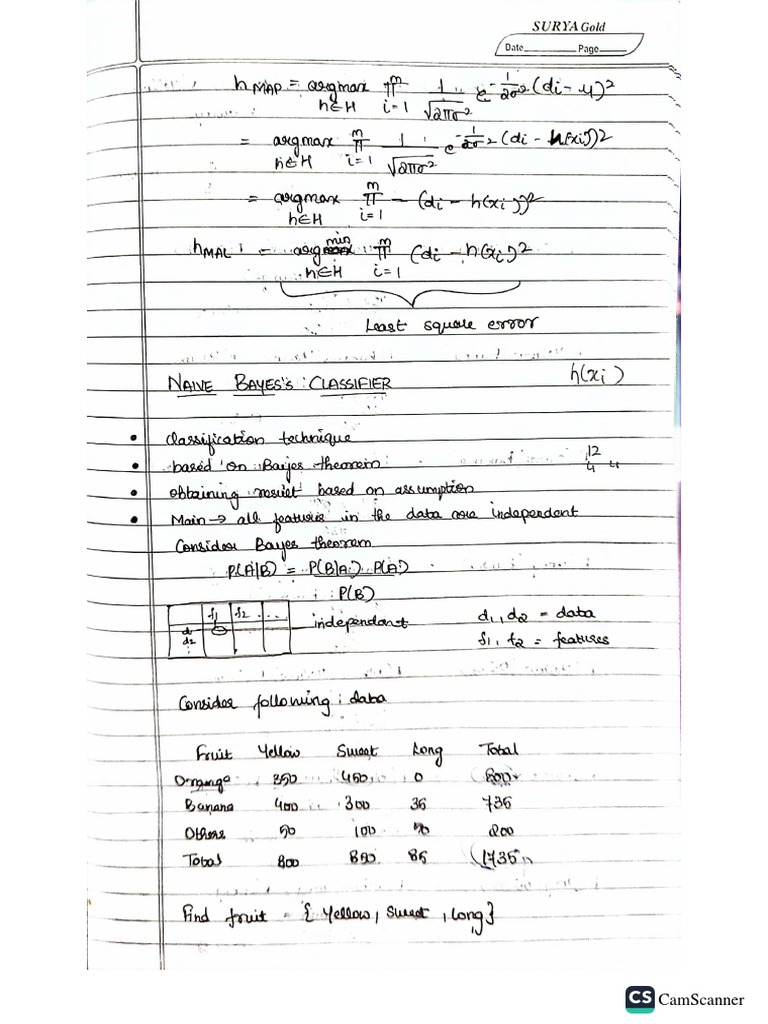 SURYA Gold
Date Page
hMAP = argmax h∈H m π i=1 1/√2πσ² e^-1/2σ² (di - μ)²
= argmax h∈H m π i=1 1/√2πσ² e^-1/2σ² (di - h(xi))²
= argmax h∈H m π i=1 - (di - h(xi))²
hMAL = argmin h∈H m π i=1 (di - h(xi))²
Least square error
NAIVE BAYES'S CLASSIFIER h(xi)
• classification technique
• based on Bayes theorem 12
• obtaining result based on assumption 4 4
• Main → all features in the data are independent
Consider Bayes theorem
P(A|B) = P(B|A) P(A)
P(B)
f1 f2 ... independant d1, d2 = data
d1
d2 f1, f2 = features
:
Consider following data
Fruit Yellow Sweet Long Total
Orange 350 450 0 800
Banana 400 300 35 735
Others 50 100 50 200
Total 800 850 85 1735
Find fruit = {Yellow, Sweet, Long}
CS CamScanner